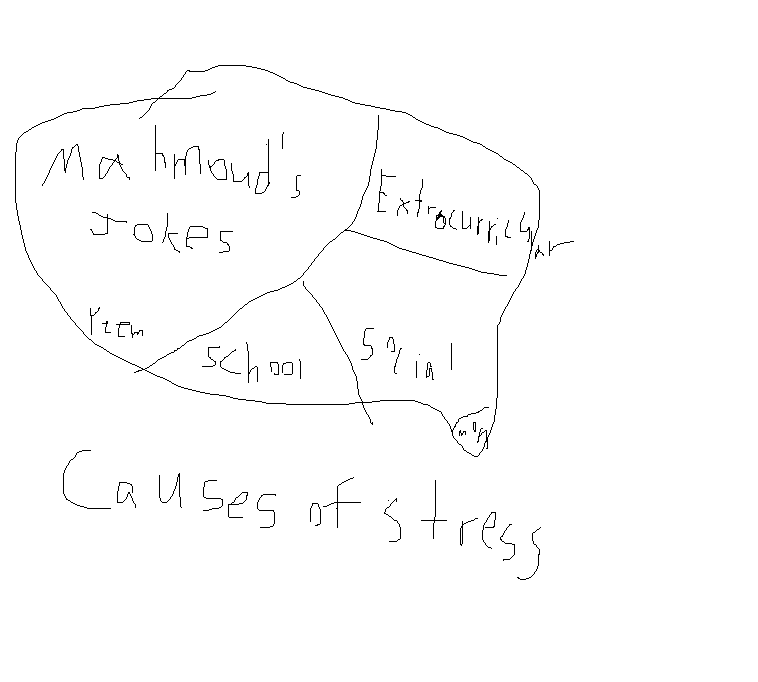 Mahmoud's
Jokes
Extracurricular
School
Social
Causes of stress